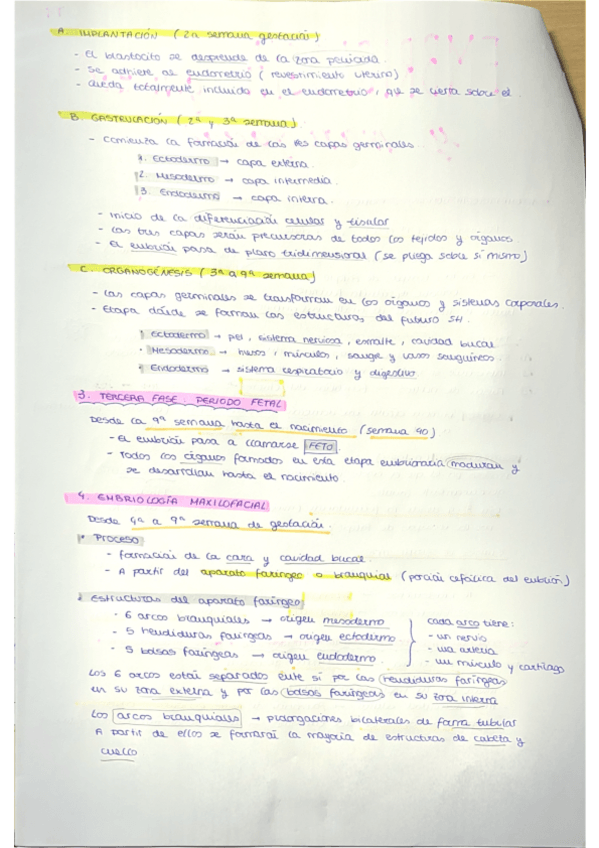 A. IMPLANTACIÓN (2ª semana gestación)
- El blastocito se desprende de la zona pelúcida.
- Se adhiere al endometrio (revestimiento uterino)
- Queda totalmente incluido en el endometrio, que se cierra sobre él
B. GASTRULACIÓN (2ª y 3ª semana)
- Comienza la formación de las tres capas germinales.
1. Ectodermo → capa externa.
2. Mesodermo → capa intermedia.
3. Endodermo → capa interna.
- Inicio de la diferenciación celular y tisular
- Las tres capas serán precursoras de todos los tejidos y órganos
- El embrión pasa de plano tridimensional (se pliega sobre sí mismo)
C. ORGANOGÉNESIS (3ª a 9ª semana)
- Las capas germinales se transforman en los órganos y sistemas corporales.
- Etapa dónde se forman las estructuras del futuro SH.
· Ectodermo → piel, sistema nervioso, esmalte, cavidad bucal
· Mesodermo → huesos, músculos, sangre y vasos sanguíneos.
· Endodermo → sistema respiratorio y digestivo
3. TERCERA FASE: PERIODO FETAL
Desde la 9ª semana hasta el nacimiento (semana 40)
- El embrión pasa a llamarse FETO.
- Todos los órganos formados en esta etapa embrionaria maduran y
se desarrollan hasta el nacimiento.
4. EMBRIOLOGÍA MAXILOFACIAL
Desde 4ª a 9ª semana de gestación.
· Proceso
- formación de la cara y cavidad bucal.
- A partir del aparato faríngeo o branquial (porción cefálica del embrión)
· Estructuras del aparato faríngeo
· 6 arcos branquiales → origen mesodermo
· 5 hendiduras faríngeas → origen ectodermo
· 5 bolsas faríngeas → origen endodermo
cada arco tiene:
- un nervio
- una arteria
- un músculo y cartílago
Los 6 arcos están separados entre sí por las hendiduras faríngeas
en su zona externa y por las bolsas faríngeas en su zona interna
Los arcos branquiales → prolongaciones bilaterales de forma tubular
A partir de ellos se formará la mayoría de estructuras de cabeza y
cuello